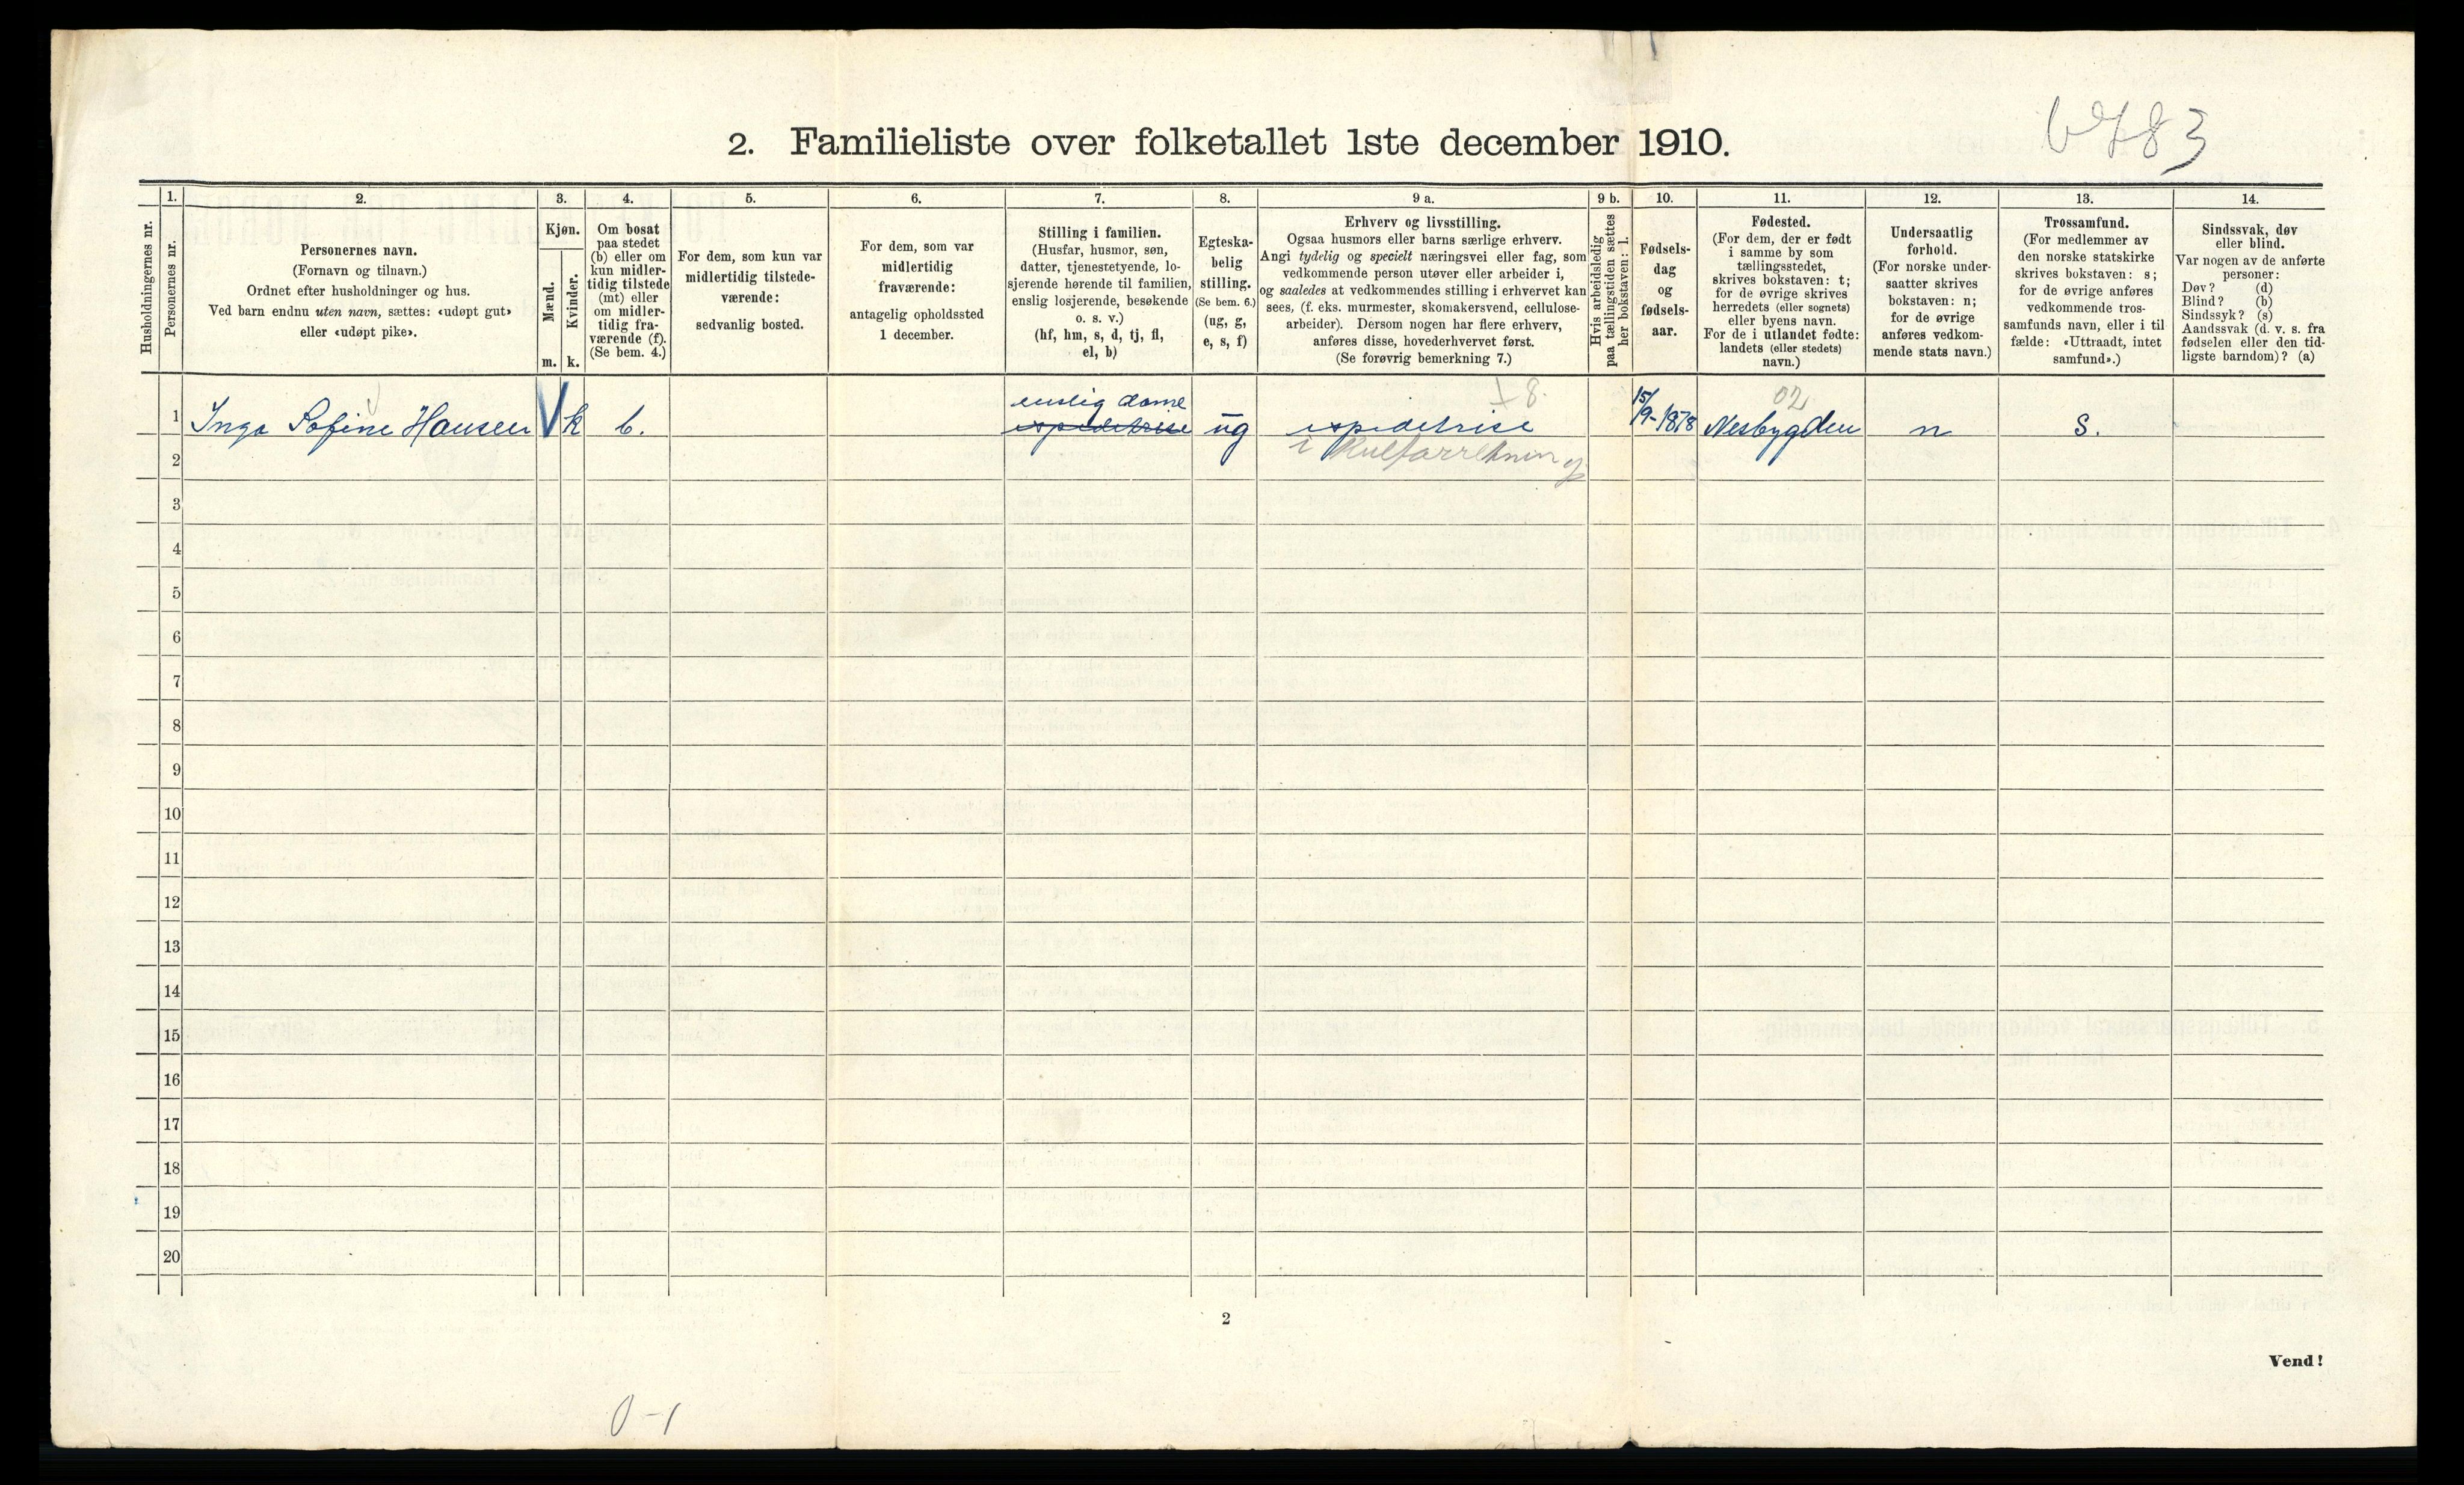 6783
2. Familieliste over folketallet 1ste december 1910.
Husholdningernes nr.
1.
Personernes nr.
2.
Personernes navn.
(Fornavn og tilnavn.)
Ordnet efter husholdninger og hus.
Ved barn endnu uten navn, sættes: «udøpt gut»
eller «udøpt pike».
3.
Kjøn.
Mænd.
m.
Kvinder.
k.
4.
Om bosat
paa stedet
(b) eller om
kun midler-
tidig tilstede
(mt) eller
om midler-
tidig fra-
værende (f).
(Se bem. 4.)
5.
For dem, som kun var
midlertidig tilstede-
værende:
sedvanlig bosted.
6.
For dem, som var
midlertidig
fraværende:
antagelig opholdssted
1 december.
7.
Stilling i familien.
(Husfar, husmor, søn,
datter, tjenestetyende, lo-
sjerende hørende til familien,
enslig losjerende, besøkende
o. s. v.)
(hf, hm, s, d, tj, fl,
el, b)
8.
Egteska-
belig
stilling.
(Se bem. 6.)
(ug, g,
e, s, f)
9 a.
Erhverv og livsstilling.
Ogsaa husmors eller barns særlige erhverv.
Angi tydelig og specielt næringsvei eller fag, som
vedkommende person utøver eller arbeider i,
og saaledes at vedkommendes stilling i erhvervet kan
sees, (f. eks. murmester, skomakersvend, cellulose-
arbeider). Dersom nogen har flere erhverv,
anføres disse, hovederhvervet først.
(Se forøvrig bemerkning 7.)
9 b.
Hvis arbeidsledig
paa tællingstiden sættes
her bokstaven: l.
10.
Fødsels-
dag
og
fødsels-
aar.
11.
Fødested.
(For dem, der er født
i samme by som
tællingsstedet,
skrives bokstaven: t;
for de øvrige skrives
herredets (eller sognets)
eller byens navn.
For de i utlandet fødte:
landets (eller stedets)
navn.)
12.
Undersaatlig
forhold.
(For norske under-
saatter skrives
bokstaven: n;
for de øvrige
anføres vedkom-
mende stats navn.)
13.
Trossamfund.
(For medlemmer av
den norske statskirke
skrives bokstaven: s;
for de øvrige anføres
vedkommende tros-
samfunds navn, eller i til
fælde: «Uttraadt, intet
samfund».)
14.
Sindssvak, døv
eller blind.
Var nogen av de anførte
personer:
Døv? (d)
Blind? (b)
Sindssyk? (s)
Aandssvak (d. v. s. fra
fødselen eller den tid-
ligste barndom)? (a)
enslig dame
1 Inga Sofine Hansen k b. espedetrise ug espedetrise 15/9-1878 Nesbygden n s.
02
2
3
4
5
6
7
8
9
10
11
12
13
14
15
16
17
18
19
20
2
Vend!
0-1